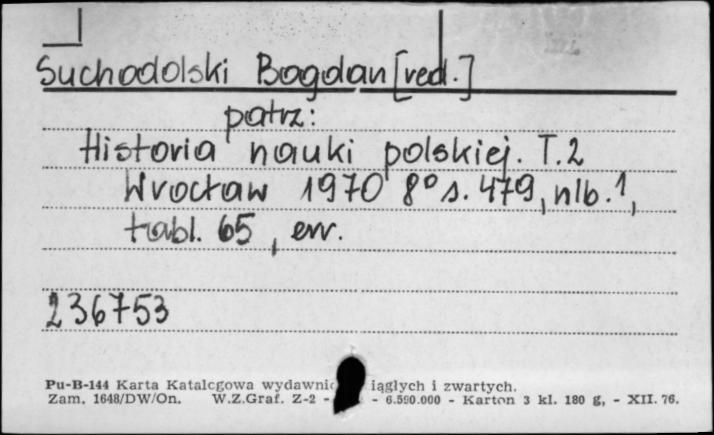 Suchodolski Bogdan [red.]
patrz:
Historia nauki polskiej. T.2
Wrocław 1970 8° s. 479, nlb. 1,
tabl. 65, err.
236753
Pu-B-144 Karta Katalogowa wydawnic iągłych i zwartych.
Zam. 1648/DW/On. W.Z.Graf. Z-2 - - 6.590.000 - Karton 3 kl. 180 g, - XII. 76.